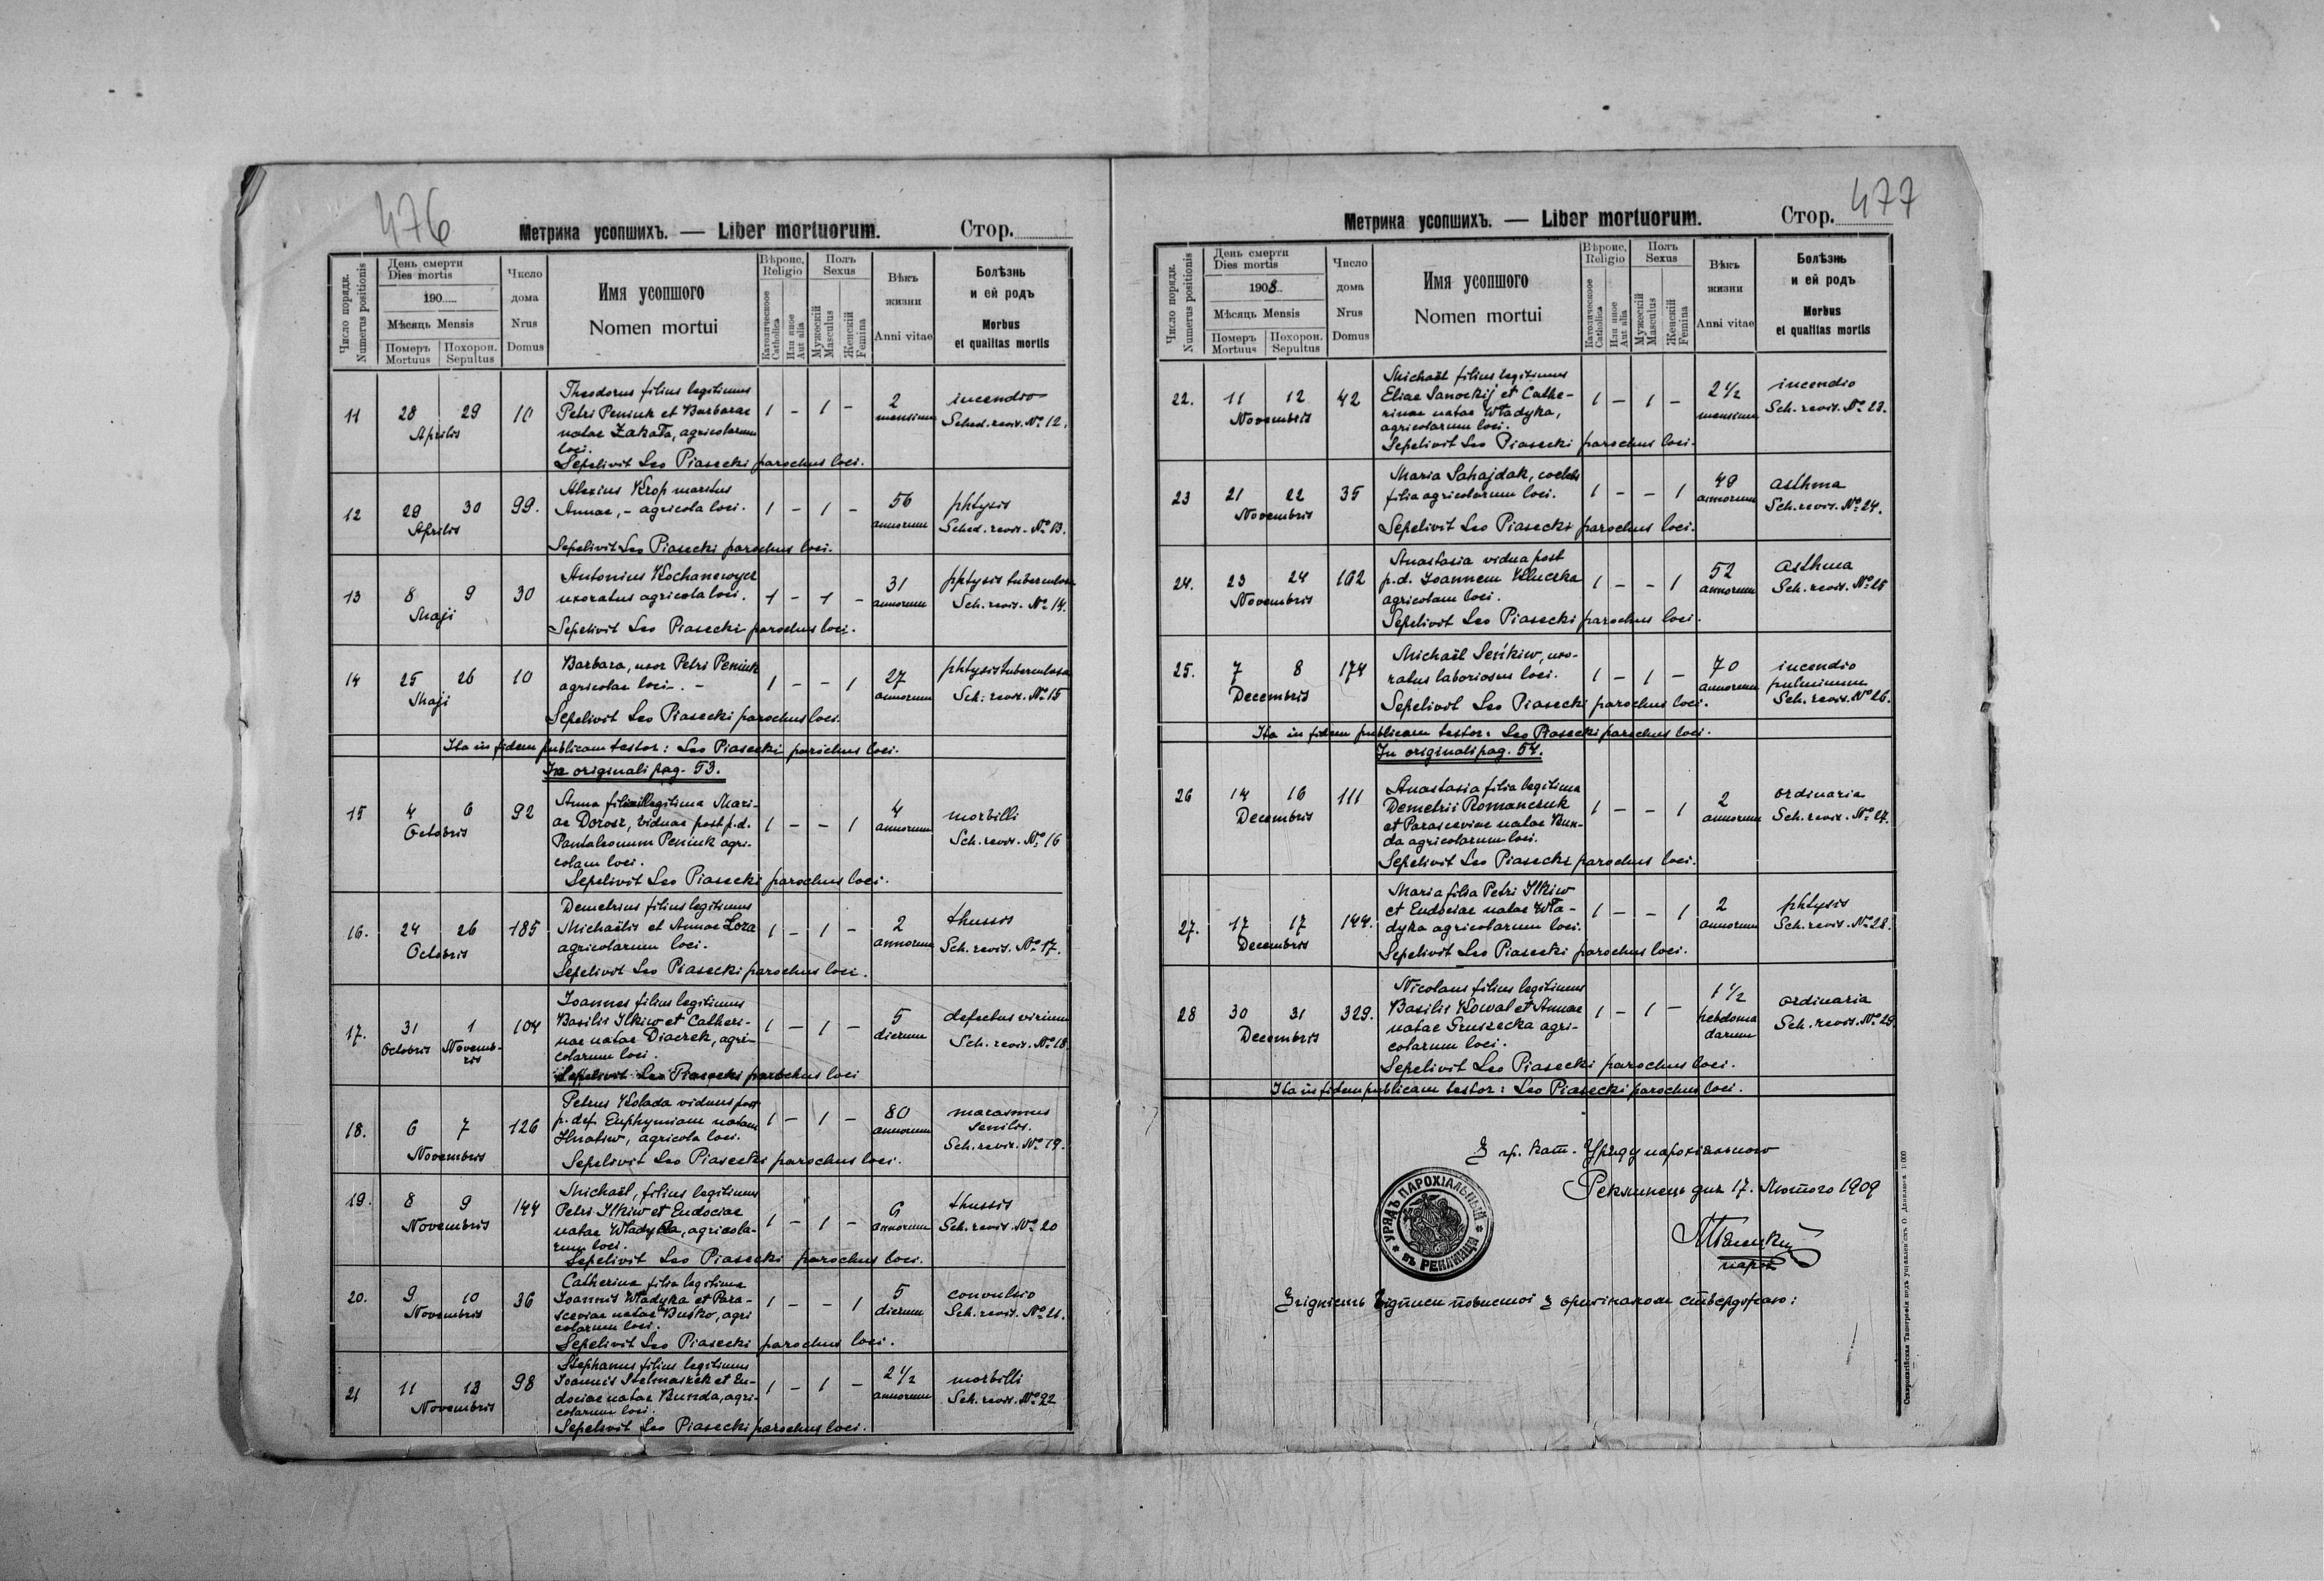 476
Метрика усопшихъ. — Liber mortuorum.
Стор.
Число порядк.
Numerus positionis
День смерти
Dies mortis
190
Мѣсяць Mensis
Померъ
Mortuus
Похорон.
Sepultus
Число
дома
Nrus
Domus
Имя усопшого
Nomen mortui
Вѣроис.
Religio
Католическое
Catholica
Или иное
Aut alia
Полъ
Sexus
Мужескій
Masculus
Женскій
Femina
Вѣкъ
жизни
Anni vitae
Болѣзнь
и ей родъ
Morbus
et qualitas mortis
11 28 29 Aprilis 10
Theodorus filius legitimus
Petri Peniuk et Barbarae
natae Zakała, agricolarum
loci.
1 – 1 –
2 mensium
incendio
Sched. revis. No 12.
Sepelivit Leo Piasecki parochus loci.
12 29 30 Aprilis 99.
Alexius Krop maritus
Annae, – agricola loci.
1 – 1 –
56 annorum
phtysis
Sched. revis. No 13.
Sepelivit Leo Piasecki parochus loci.
13 8 9 Maji 30
Antonius Kochanewycz
uxoratus agricola loci.
1 – 1 –
31 annorum
phtysis tuberculosa
Sch. revis. No 14.
Sepelivit Leo Piasecki parochus loci.
14 25 26 Maji 10
Barbara, uxor Petri Peniuk
agricolae loci. –
1 – – 1
27 annorum
phtysis tuberculosa
Sch. revis. No 15
Sepelivit Leo Piasecki parochus loci.
Ita in fidem publicam testor: Leo Piasecki parochus loci.
In originali pag. 53.
15 4 6 Octobris 92
Anna filia illegitima Mari-
ae Dorosz, viduae post p.d.
Pantaleonum Peniuk agri-
colam loci.
1 – – 1
4 annorum
morbilli
Sch. revis. No 16
Sepelivit Leo Piasecki parochus loci.
16. 24 26 Octobris 185
Demetrius filius legitimus
Michaëlis et Annae Loza
agricolarum loci.
1 – 1 –
2 annorum
thussis
Sch. revis. No 17.
Sepelivit Leo Piasecki parochus loci.
17. 31 Octobris 1 Novemb-
ris 104
Joannes filius legitimus
Basilii Ilkiw et Catheri-
nae natae Diaczek, agri-
colarum loci.
1 – 1 –
5 dierum
defectus virium
Sch. revis. No 18.
Sepelivit Leo Piasecki parochus loci
18. 6 7 Novembris 126
Petrus Kolada viduus post
p. def. Euphymiam natam
Hnatiw, agricola loci.
1 – 1 –
80 annorum
marasmus
senilis.
Sch. revis. No 19.
Sepelivit Leo Piasecki parochus loci.
19. 8 9 Novembris 144
Michaël, filius legitimus
Petri Ilkiw et Eudociae
natae Władyka, agricola-
rum loci.
1 – 1 –
6 annorum
thussis
Sch. revis. No 20
Sepelivit Leo Piasecki parochus loci.
20. 9 10 Novembris 36
Catherina filia legitima
Joannis Władyka et Para-
sceviae natae Buśko, agri
colarum loci.
1 – – 1
5 dierum
convulsio
Sch. revis. No 21.
Sepelivit Leo Piasecki parochus loci.
21 11 13 Novembris 98
Stephanus filius legitimus
Joannis Stelmaszek et Eu-
dociae natae Bunda, agri-
colarum loci.
1 – 1 –
2 1/2 annorum
morbilli
Sch. revis. No 22
Sepelivit Leo Piasecki parochus loci.
477
Метрика усопшихъ. — Liber mortuorum.
Стор.
Число порядк.
Numerus positionis
День смерти
Dies mortis
1908.
Мѣсяць Mensis
Померъ
Mortuus
Похорон.
Sepultus
Число
дома
Nrus
Domus
Имя усопшого
Nomen mortui
Вѣроис.
Religio
Католическое
Catholica
Или иное
Aut alia
Полъ
Sexus
Мужескій
Masculus
Женскій
Femina
Вѣкъ
жизни
Anni vitae
Болѣзнь
и ей родъ
Morbus
et qualitas mortis
22. 11 12 Novembris 42
Michaël filius legitimus
Eliae Sanockij et Cathe-
rinae natae Władyka,
agricolarum loci.
1 – 1 –
2 1/2 mensium
incendio
Sch. revis. No 23.
Sepelivit Leo Piasecki parochus loci.
23 21 22 Novembris 35
Maria Sahajdak, coelebs
filia agricolarum loci.
1 – – 1
49 annorum
asthma
Sch. revis. No 24.
Sepelivit Leo Piasecki parochus loci.
24. 23 24 Novembris 102
Anastasia vidua post
p.d. Joannem Kluczka
agricolam loci.
1 – – 1
52 annorum
asthma
Sch. revis. No 25
Sepelivit Leo Piasecki parochus loci.
25. 7 8 Decembris 174
Michaël Seńkiw, uxo-
ratus laboriosus loci.
1 – 1 –
70 annorum
incendio
pulminum
Sch. revis. No 26.
Sepelivit Leo Piasecki parochus loci.
Ita in fidem publicam testor: Leo Piasecki parochus loci.
In originali pag. 54.
26 14 16 Decembris 111
Anastasia filia legitima
Demetrii Romanczuk
et Parasceviae natae Bun-
da agricolarum loci.
1 – – 1
2 annorum
ordinaria
Sch. revis. No 27.
Sepelivit Leo Piasecki parochus loci.
27. 17 17 Decembris 144.
Maria filia Petri Ilkiw
et Eudociae natae Wła-
dyka agricolarum loci.
1 – – 1
2 annorum
phtysis
Sch. revis. No 28.
Sepelivit Leo Piasecki parochus loci.
28 30 31 Decembris 329.
Nicolaus filius legitimus
Basilii Kowal et Annae
natae Gruszecka agri-
colarum loci.
1 – 1 –
1 1/2 hebdoma
darum
ordinaria
Sch. revis. No 29
Sepelivit Leo Piasecki parochus loci.
Ita in fidem publicam testor: Leo Piasecki parochus loci.
З гр. кат. Уряду парохіяльного
Реклинець дня 17. Лютого 1909
УРЯДЪ ПАРОХІАЛЬНЫЙ
въ РЕКЛИНЦА
парох
Згідність відписи повисшої з оригіналом стверджаю: